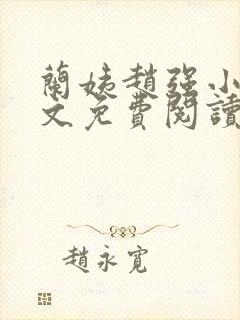 蘭姨趙強小
文免費閱讀
趙永寬